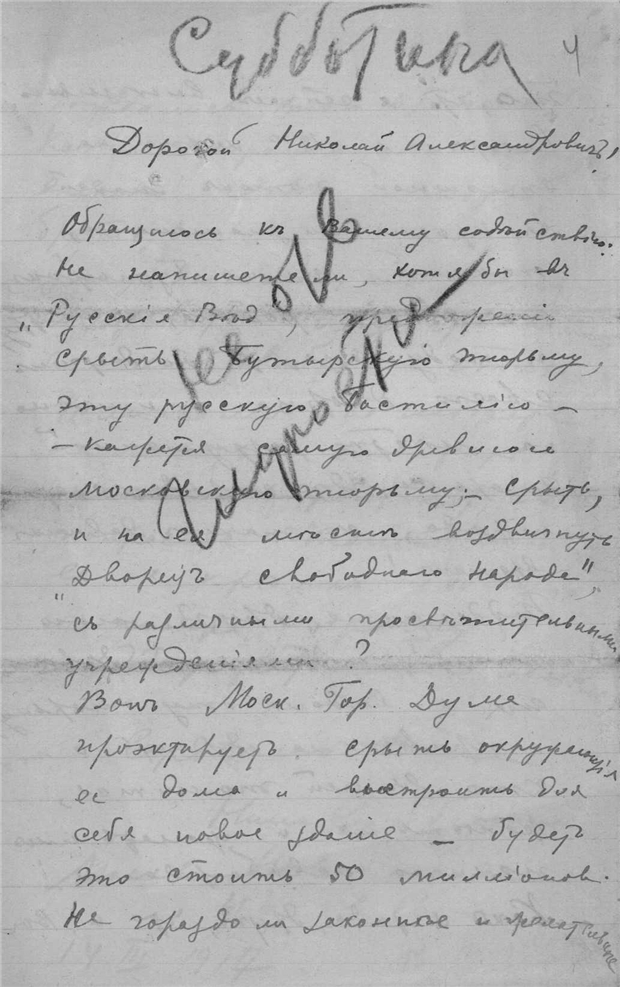 Субботина
4
Дорогой Николай Александровичъ,
Обращаюсь къ Вашему содѣйствію.
Не напишете ли, хотя бы въ
„Русскія Вѣд",
срыть Бутырскую тюрьму,
эту русскую Бастилію –
– кажется самую древнюю
московскую тюрьму, – срыть,
и на ея мѣстѣ воздвигнуть
"Дворецъ свободнаго народа",
съ различными просвѣтительными
учрежденіями?
Вотъ Моск. Гор. Дума
проэктируетъ срыть окружающія
ее дома и выстроить для
себя новое зданіе – будетъ
это стоить 50 милліонов.
Не гораздо ли законнѣе и